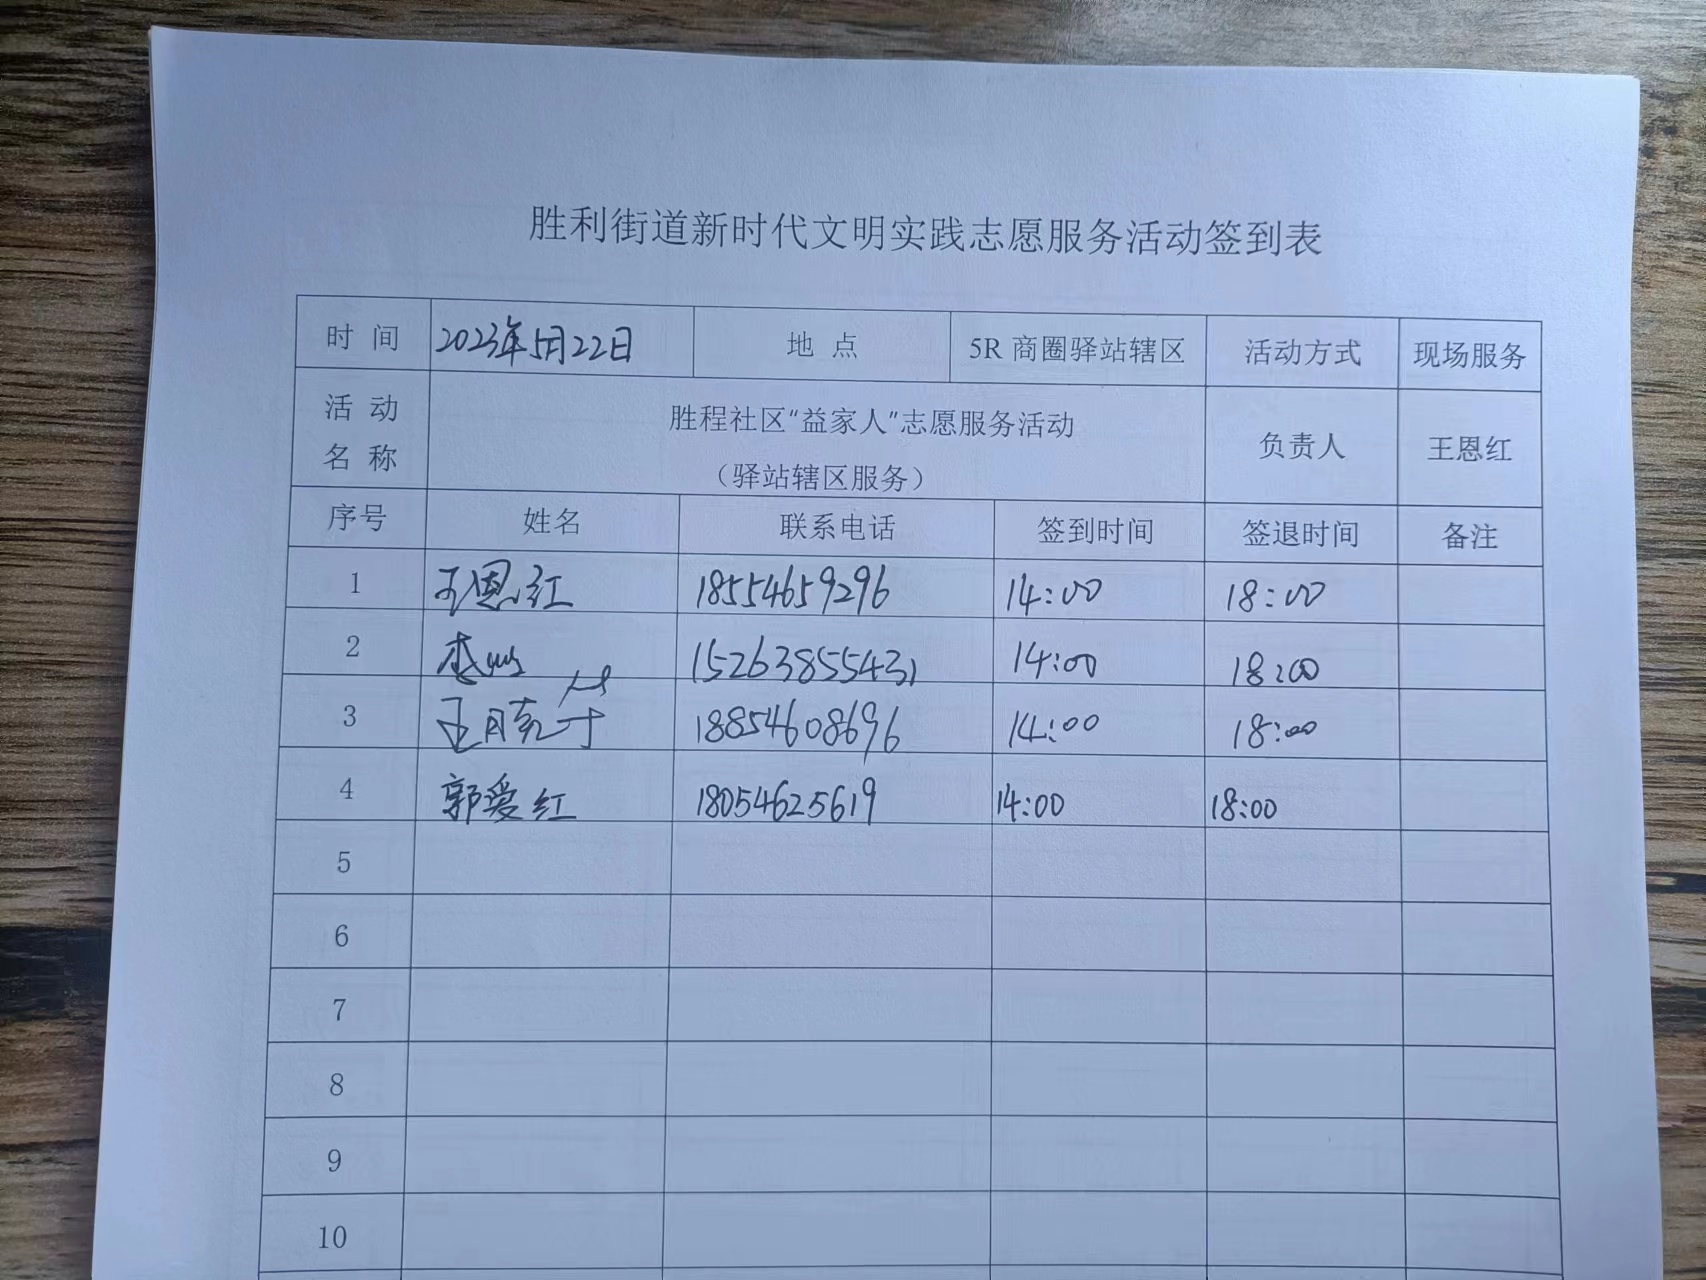 胜利街道新时代文明实践志愿服务活动签到表
时 间 2023年5月22日 地 点 5R 商圈驿站辖区 活动方式 现场服务
活 动 名 称 胜程社区“益家人”志愿服务活动 （驿站辖区服务） 负责人 王恩红
序号 姓名 联系电话 签到时间 签退时间 备注
1 王恩红 18554659296 14:00 18:00
2 15263855431 14:00 18:00
3 18854608696 14:00 18:00
4 郭爱红 18054625619 14:00 18:00
5
6
7
8
9
10